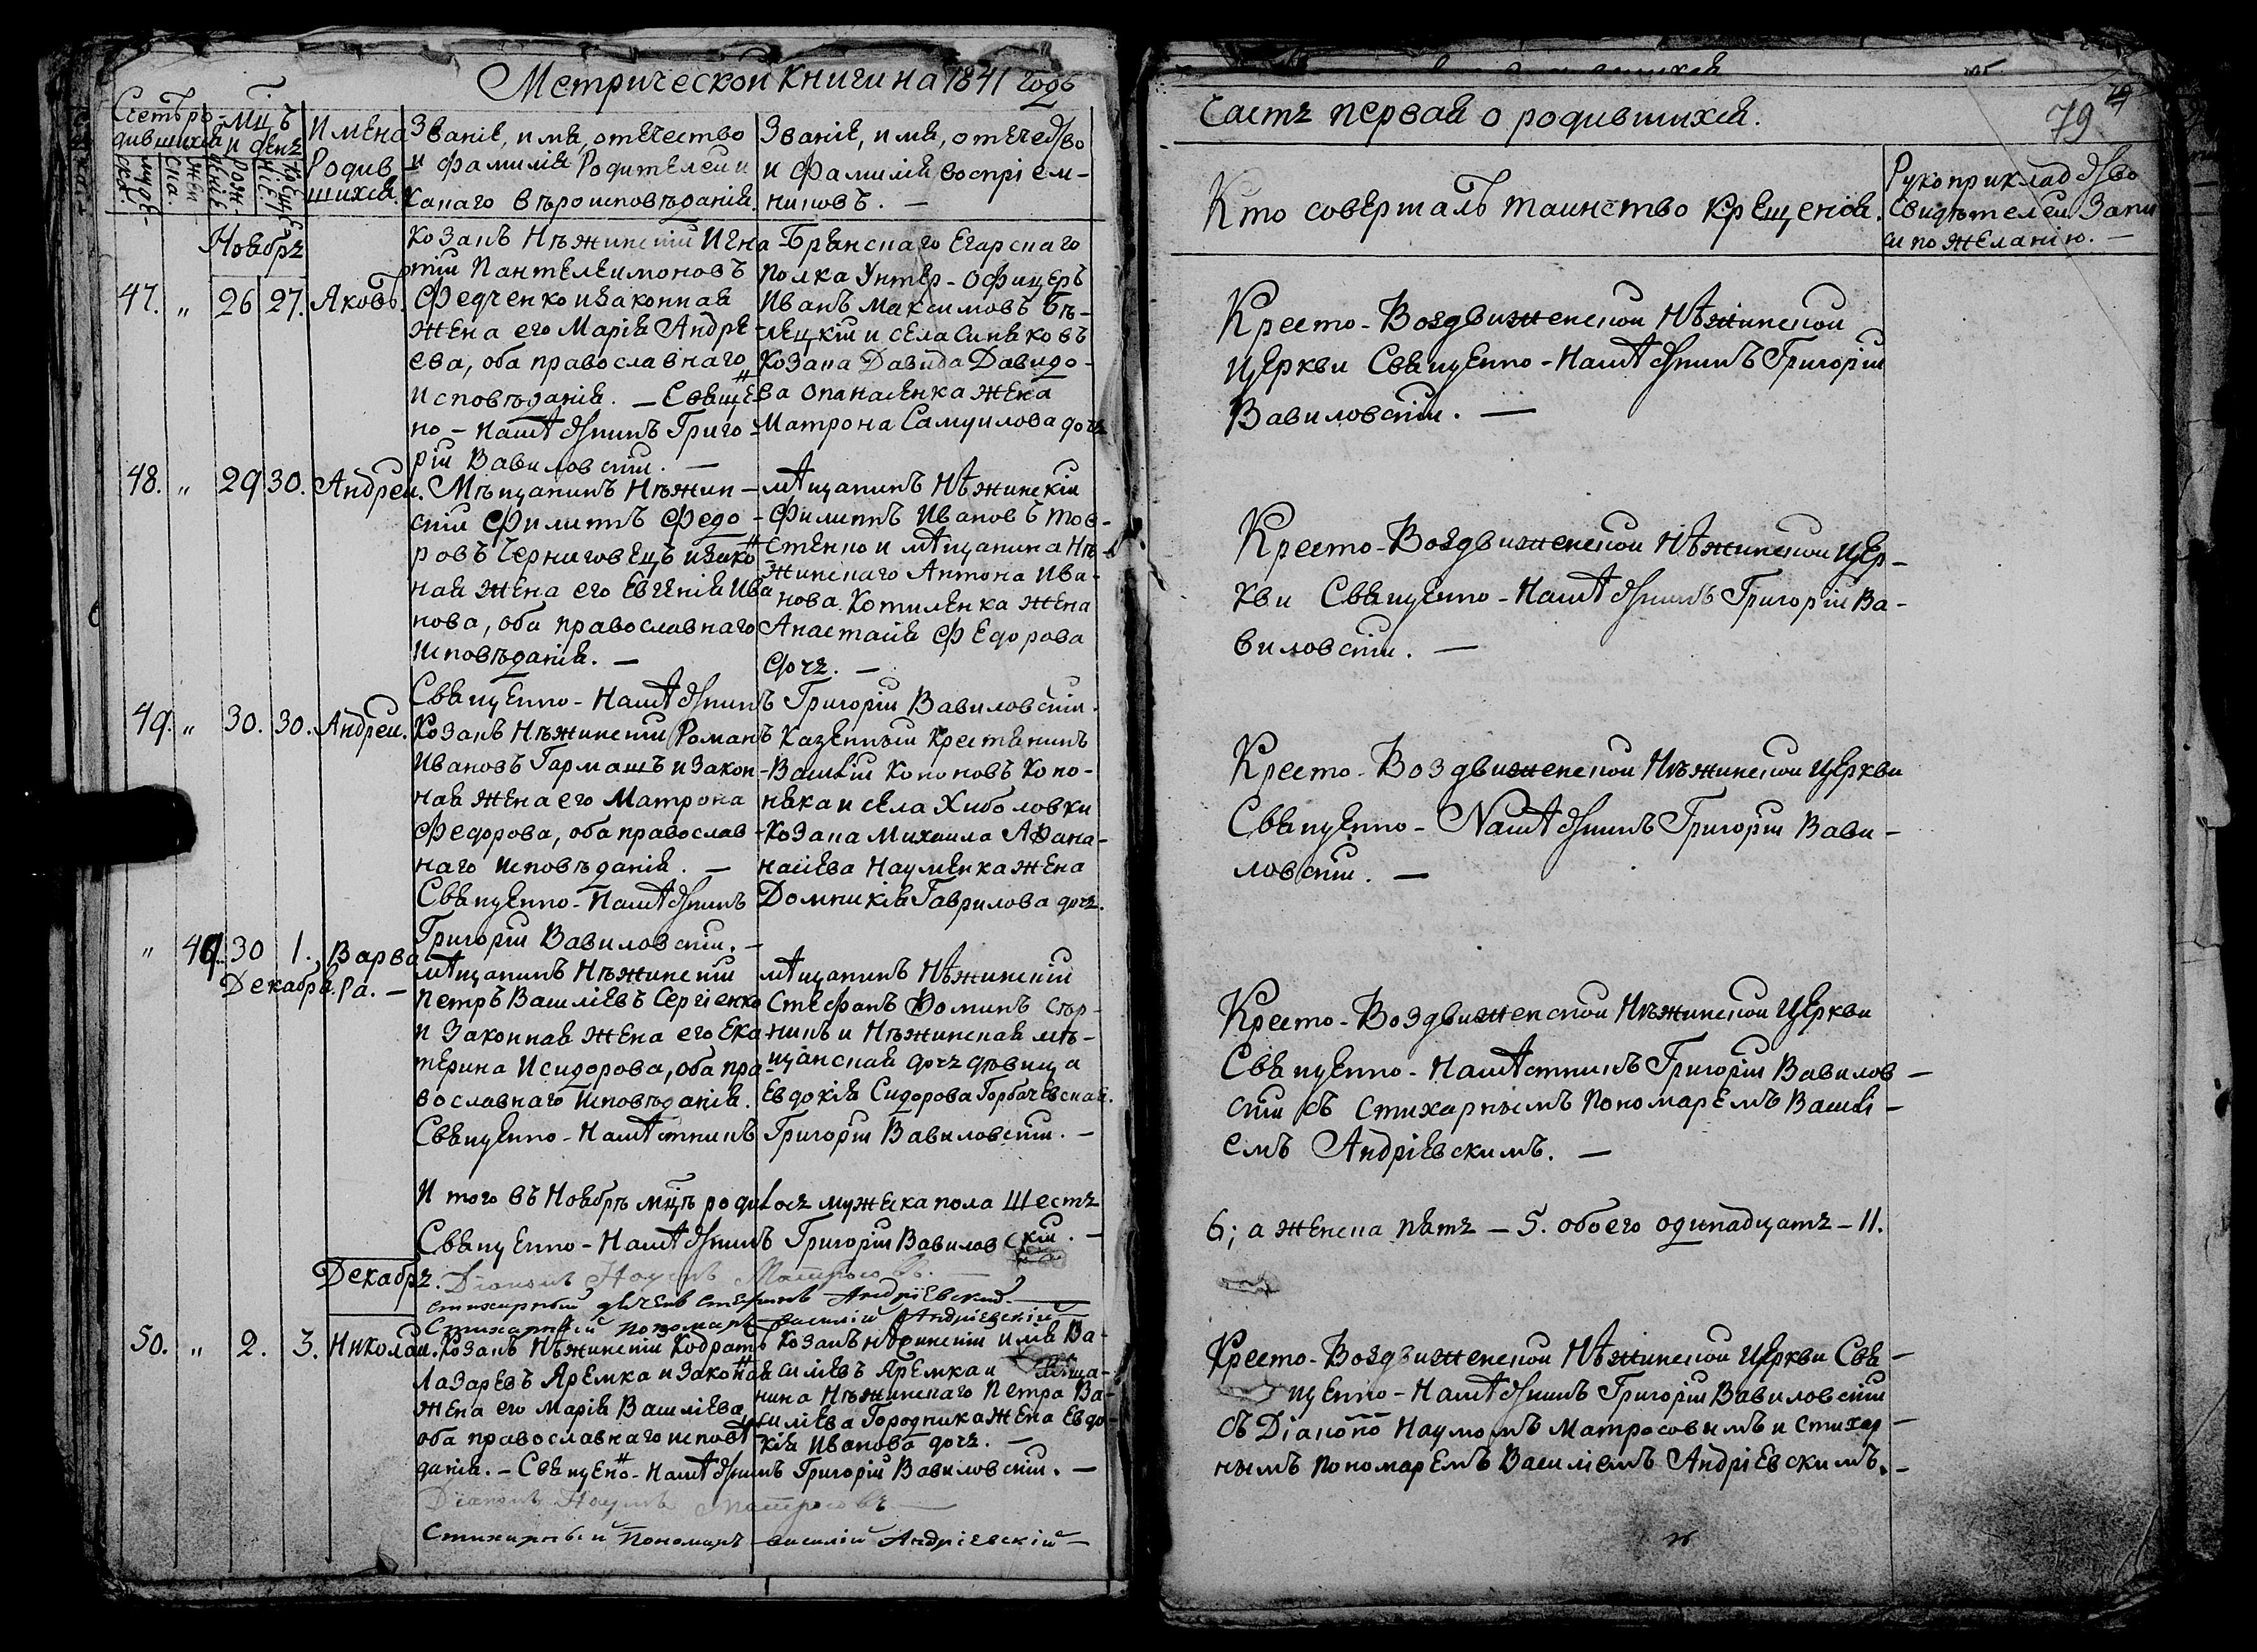 Метрической книги на 1841 годъ
Счетъ ро-
дившихся
муже-
ска.
жен-
ска.
Мцъ
и день
Рож-
денiе
Креще-
нiе.
Имена
Родив-
шихся.
Званiе, имя, отечество
и фамилiя Родителей и
какаго вѣроисповѣданiя.
Званiе, имя, отечество
и Фамилiя воспрiем-
никовъ. —
Ноябрь
47. „ 26 27. Яковъ.
Козакъ Нѣжинскiй Игна-
тiй Пантелеимоновъ
Федченко и законная
жена его Марiя Андре-
ева, оба православнаго
исповѣданiя. — Свяще-
но-Намѣстникъ Григо-
рiй Вавиловскiй. —
Брянскаго Егарскаго
полка Унтер-Офицеръ
Иванъ Максимовъ Бѣ-
лецкiй и села Синяковъ
Козака Давида Давидо-
ва Опанасенка жена
Матрона Самуилова дочь
48. „ 29 30. Андрей.
Мѣщанинъ Нѣжин-
скiй Филиппъ Федо-
ровъ Черниговецъ и зако
ная жена его Евгенiя Ива
нова, оба православнаго
исповѣданiя. —
мѣщанинъ Нѣжинскiй
Филиппъ Ивановъ Тов-
стенко и мѣщанина Нѣ-
жинскаго Антона Ива-
нова Котиленка жена
Анастасiя Федорова
дочь. —
Священно-Намѣстникъ Григорiй Вавиловскiй.
49. „ 30. 30. Андрей.
Козакъ Нѣжинскiй Романъ
Ивановъ Гармашъ и закон-
ная жена его Матрона
Федорова, оба православ-
наго исповѣданiя. —
Священно-Намѣстникъ
Григорiй Вавиловскiй. —
Казенный Крестянинъ
Василiй Кононовъ Коно-
няка и села Хиболовки
Козака Михаила Афана-
насiева Науменка жена
Домникiя Гаврилова дочь.
„ 49. 30 1. Варва
Декабря. ра. —
мѣщанинъ Нѣжинскiй
Петръ Василiевъ Сергiенко
и законная жена его Ека-
терина Исидорова, оба пра-
вославнаго исповѣданiя.
мѣщанинъ Нѣжинскiй
Стефанъ Фоминъ
нинъ и Нѣжинская мѣ-
щанская дочь дѣвица
Евдокiя Сидорова Горбачевская.
Священно-Намѣстникъ Григорiй Вавиловскiй. —
И того въ Ноябрѣ мцѣ родилось мужеска пола Шесть
Священно-Намѣстникъ Григорiй Вавиловскiй. —
Декабрь.
Дiаконъ Наумъ Матросовъ. —
стихарный дячекъ стефанъ Андрiевский. —
Стихарный пономарь василiй Андрiевскiй
50. „ 2. 3. Николай.
Козакъ Нѣжинскiй Кодратъ
Лазаревъ Яремка и законая
жена его Марiя Василiева,
оба православнаго исповѣ-
данiя. — Священо-Намѣстникъ Григорiй Вавиловскiй. —
Козакъ нѣжинскiй Ва-
силiевъ Яремка и мѣща-
нина Нѣжинскаго Петра Ва-
силiева Городника жена Евдо-
кiя Иванова дочь. —
Дiаконъ Наумъ Матросовъ —
Стихарный Пономарь василiй Андрiевскiй —
79
Часть первая о родившихся.
Кто совершалъ таинство крещенiя.
Рукоприкладство
свидѣтелей Запи
си по желанiю. —
Кресто-Воздвиженской Нѣжинской
церкви Священно-Намѣстникъ Григорiй
Вавиловскiй. —
Кресто-Воздвиженской Нѣжинской цер-
кви Священно-Намѣстникъ Григорiй Ва-
виловскiй. —
Кресто-Воздвиженской Нѣжинской церкви
Священно-Намѣстникъ Григорiй Вави-
ловскiй. —
Кресто-Воздвиженской Нѣжинской церкви
Священно-Намѣстникъ Григорiй Вавилов-
скiй съ Стихарнымъ Пономаремъ Василi-
емъ Андрiевскимъ. —
6; а женска пять — 5. обоего одинадцать — 11.
Кресто-Воздвиженской Нѣжинской церкви Свя-
щенно-Намѣстникъ Григорiй Вавиловскiй
съ Дiакономъ Наумомъ Матросовымъ и Стихар-
нымъ Пономаремъ Василiемъ Андрiевскимъ. —